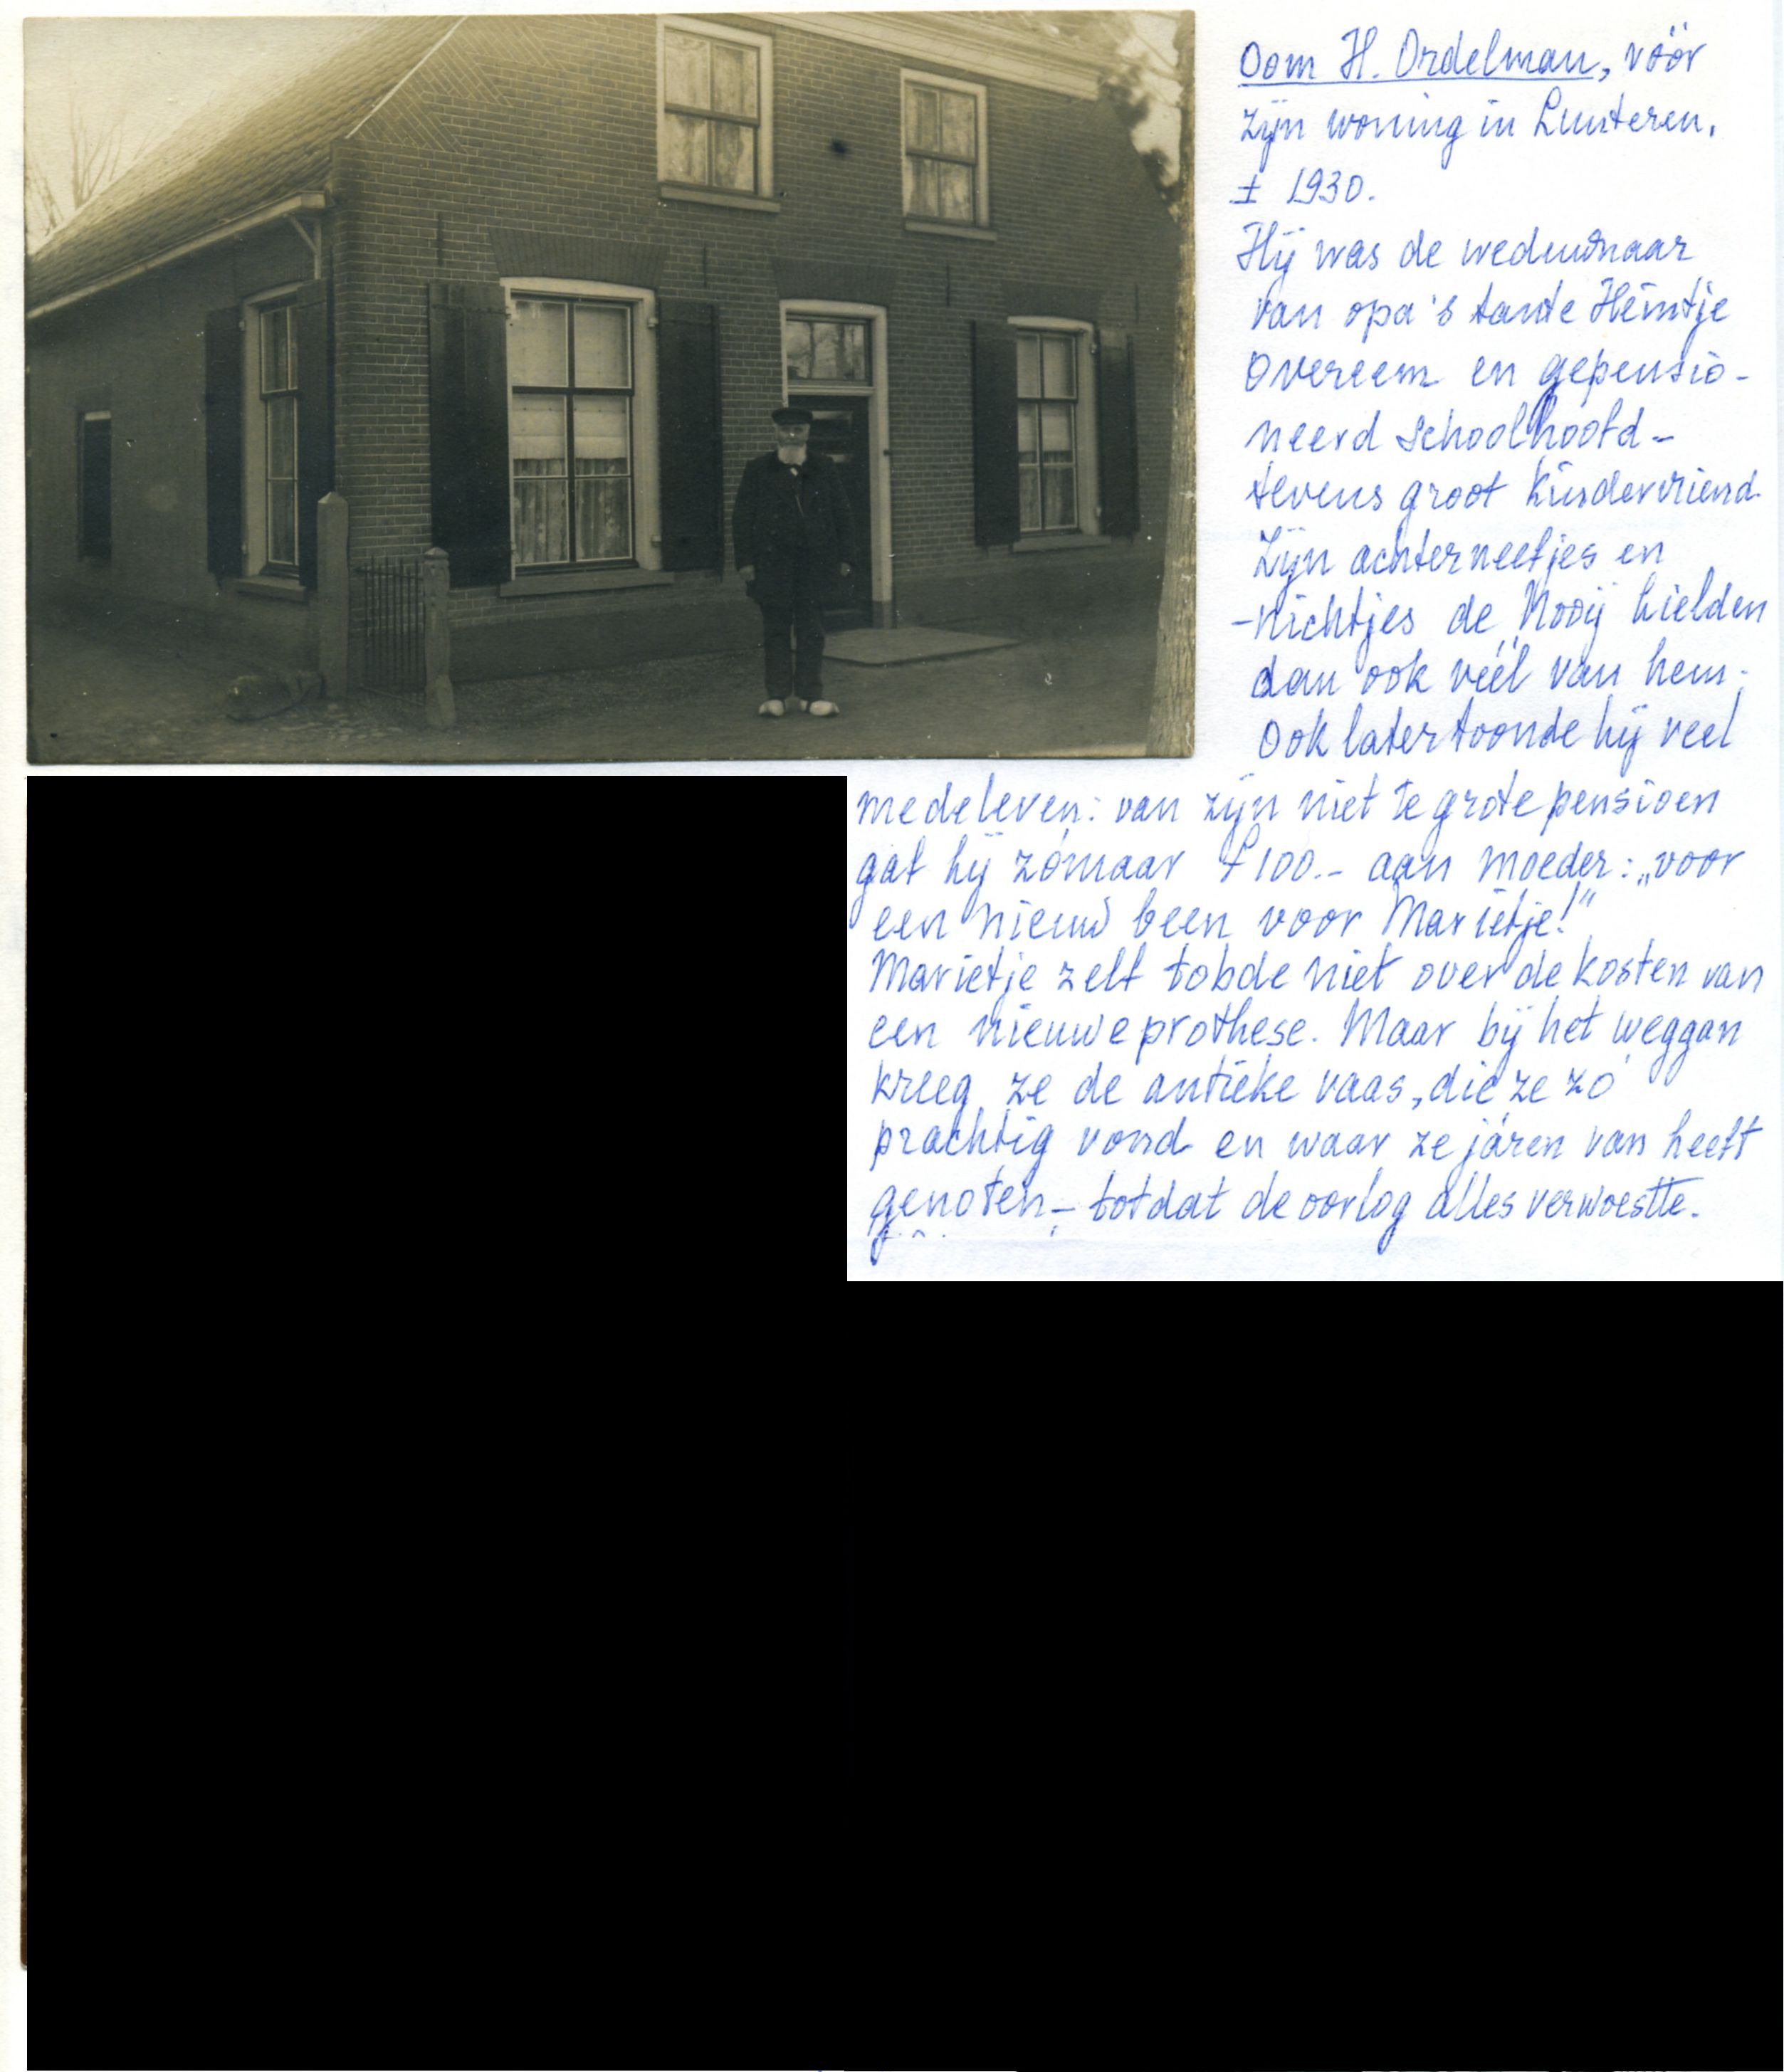 Oom H. Ordelman, vóór
zijn woning in Lunteren.
± 1930.
Hij was de weduwnaar
van opa's tante Heintje
Overeem en gepensio-
neerd schoolhoofd -
tevens groot kindervriend
Zijn achterneefjes en
-nichtjes de Nooij hielden
dan ook véél van hem.
Ook later toonde hij veel
medeleven: van zijn niet te grote pensioen
gaf hij zómaar f 100.- aan moeder: „voor
een nieuw been voor Marietje!"
Marietje zelf tobde niet over de kosten van
een nieuwe prothese. Maar bij het weggan
kreeg ze de antieke vaas, die ze zó
prachtig vond en waar ze járen van heeft
genoten - totdat de oorlog alles verwoestte.